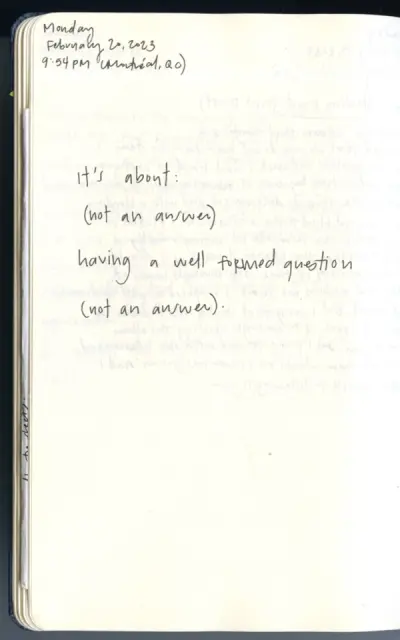 Monday
February 20, 2023
9:54 PM (Montréal, QC)
it's about:
(not an answer)
having a well formed question
(not an answer).